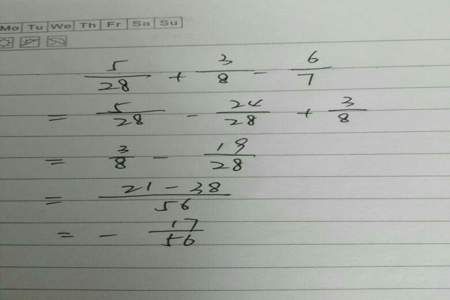 Mo Tu We Th Fr Sa Su
5/28 + 3/8 - 6/7
= 5/28 - 24/28 + 3/8
= 3/8 - 19/28
= 21-38/56
= - 17/56